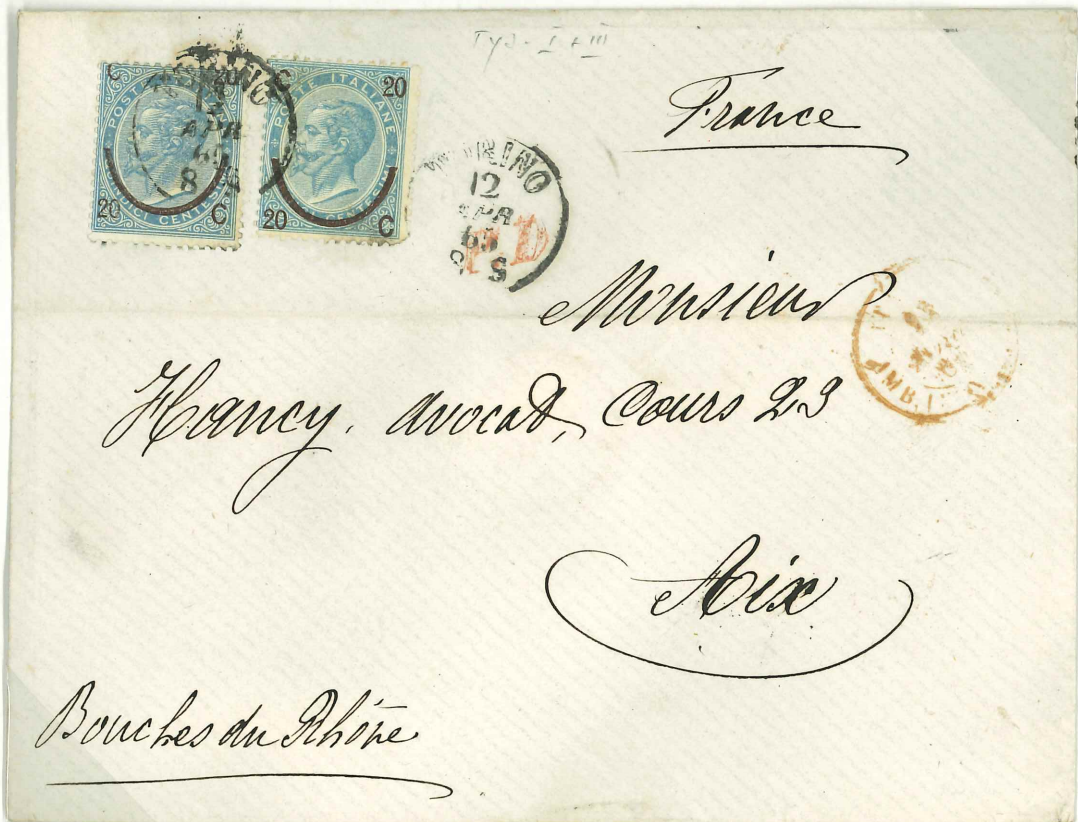 Typ. I + III
C 20
POSTE ITALIANE
20 C
C 20
POSTE ITALIANE
20 C
TORINO
12
APR
65
8 S
TORINO
12
APR
65
8 S
P.D
France
Monsieur
Hancy, avocat, Cours 23
AMB.
Aix
Bouches du Rhône